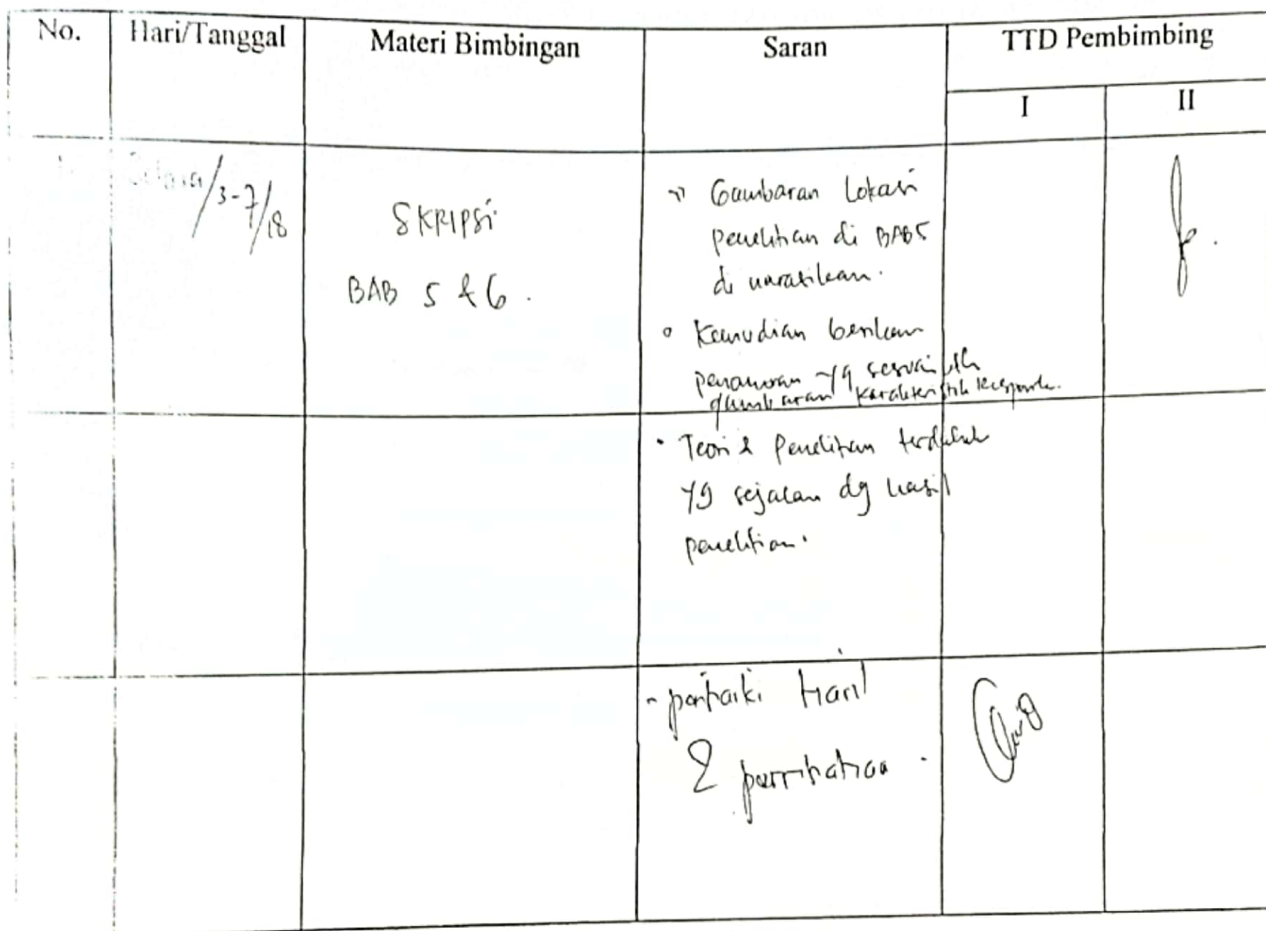 No. Hari/Tanggal Materi Bimbingan Saran TTD Pembimbing
I II
Selasa/3-7/18
SKRIPSI
BAB 5 & 6.
Gambaran Lokasi
penelitian di BAB 5
di narasikan.
Kemudian berikan
yg sesuai
gambaran karakteristik
Teori & penelitian terdahulu
yg sejalan dg hasil
penelitian.
- perbaiki Hasil
& pembahasan